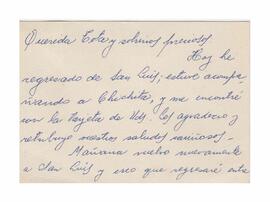 Querida Tota y sobrinos preciosos
Hoy he
regresado de San Luis; estuve acompa
ñando a Chichita, y me encontré
con la tarjeta de Uds. Les agradezco y
retribuyo vuestros saludos cariñosos -
Mañana vuelvo nuevamente
a San Luis y creo que regresaré esta